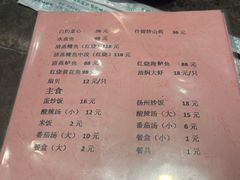 白灼菜心 36元 什锦炒山药 36元
水煮鱼 98元
清蒸鳜鱼（红烧）118元
清蒸鳜鱼中段（红烧）118元
清蒸鲈鱼 88元 红烧海鲈鱼 88元
红烧黄花鱼 98元 油焖大虾 18元/只
扇贝 12元/只
主食
蛋炒饭 18元 扬州炒饭 18元
酸辣汤（小）12元 酸辣汤（大）15元
米饭 2元 番茄汤（小）6元
番茄汤（大）10元 餐盒（小）1元
餐盒（大）2元 餐具 1元